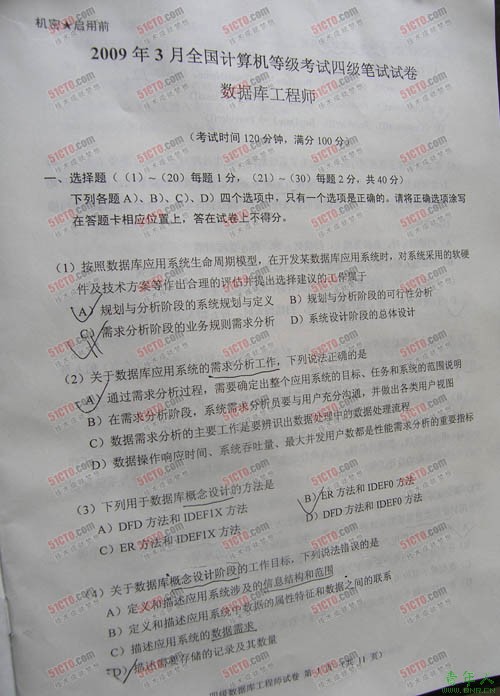 机密★启用前
2009 年 3 月全国计算机等级考试四级笔试试卷
数据库工程师
(考试时间 120 分钟,满分 100 分)
一、选择题((1)~(20)每题 1 分,(21)~(30)每题 2 分,共 40 分)
下列各题 A)、B)、C)、D)四个选项中,只有一个选项是正确的。请将正确选项涂写
在答题卡相应位置上,答在试卷上不得分。
(1)按照数据库应用系统生命周期模型,在开发某数据库应用系统时,对系统采用的软硬
件及技术方案等作出合理的评估并提出选择建议的工作属于
A)规划与分析阶段的系统规划与定义 B)规划与分析阶段的可行性分析
C)需求分析阶段的业务规则需求分析 D)系统设计阶段的总体设计
(2)关于数据库应用系统的需求分析工作,下列说法正确的是
A)通过需求分析过程,需要确定出整个应用系统的目标、任务和系统的范围说明
B)在需求分析阶段,系统需求分析员要与用户充分沟通,并做出各类用户视图
C)数据需求分析的主要工作是要辨识出数据处理中的数据处理流程
D)数据操作响应时间、系统吞吐量、最大并发用户数都是性能需求分析的重要指标
(3)下列用于数据库概念设计的方法是
A)DFD 方法和 IDEF1X 方法 B)ER 方法和 IDEF0 方法
C)ER 方法和 IDEF1X 方法 D)DFD 方法和 IDEF0 方法
(4)关于数据库概念设计阶段的工作目标,下列说法错误的是
A)定义和描述应用系统涉及的信息结构和范围
B)定义和描述应用系统中数据的属性特征和数据之间的联系
C)描述应用系统的数据需求
D)描述需要存储的记录及其数量
四级数据库工程师试卷 第 1 页(共 11 页)
51CTO.com
技术成就梦想
青年人